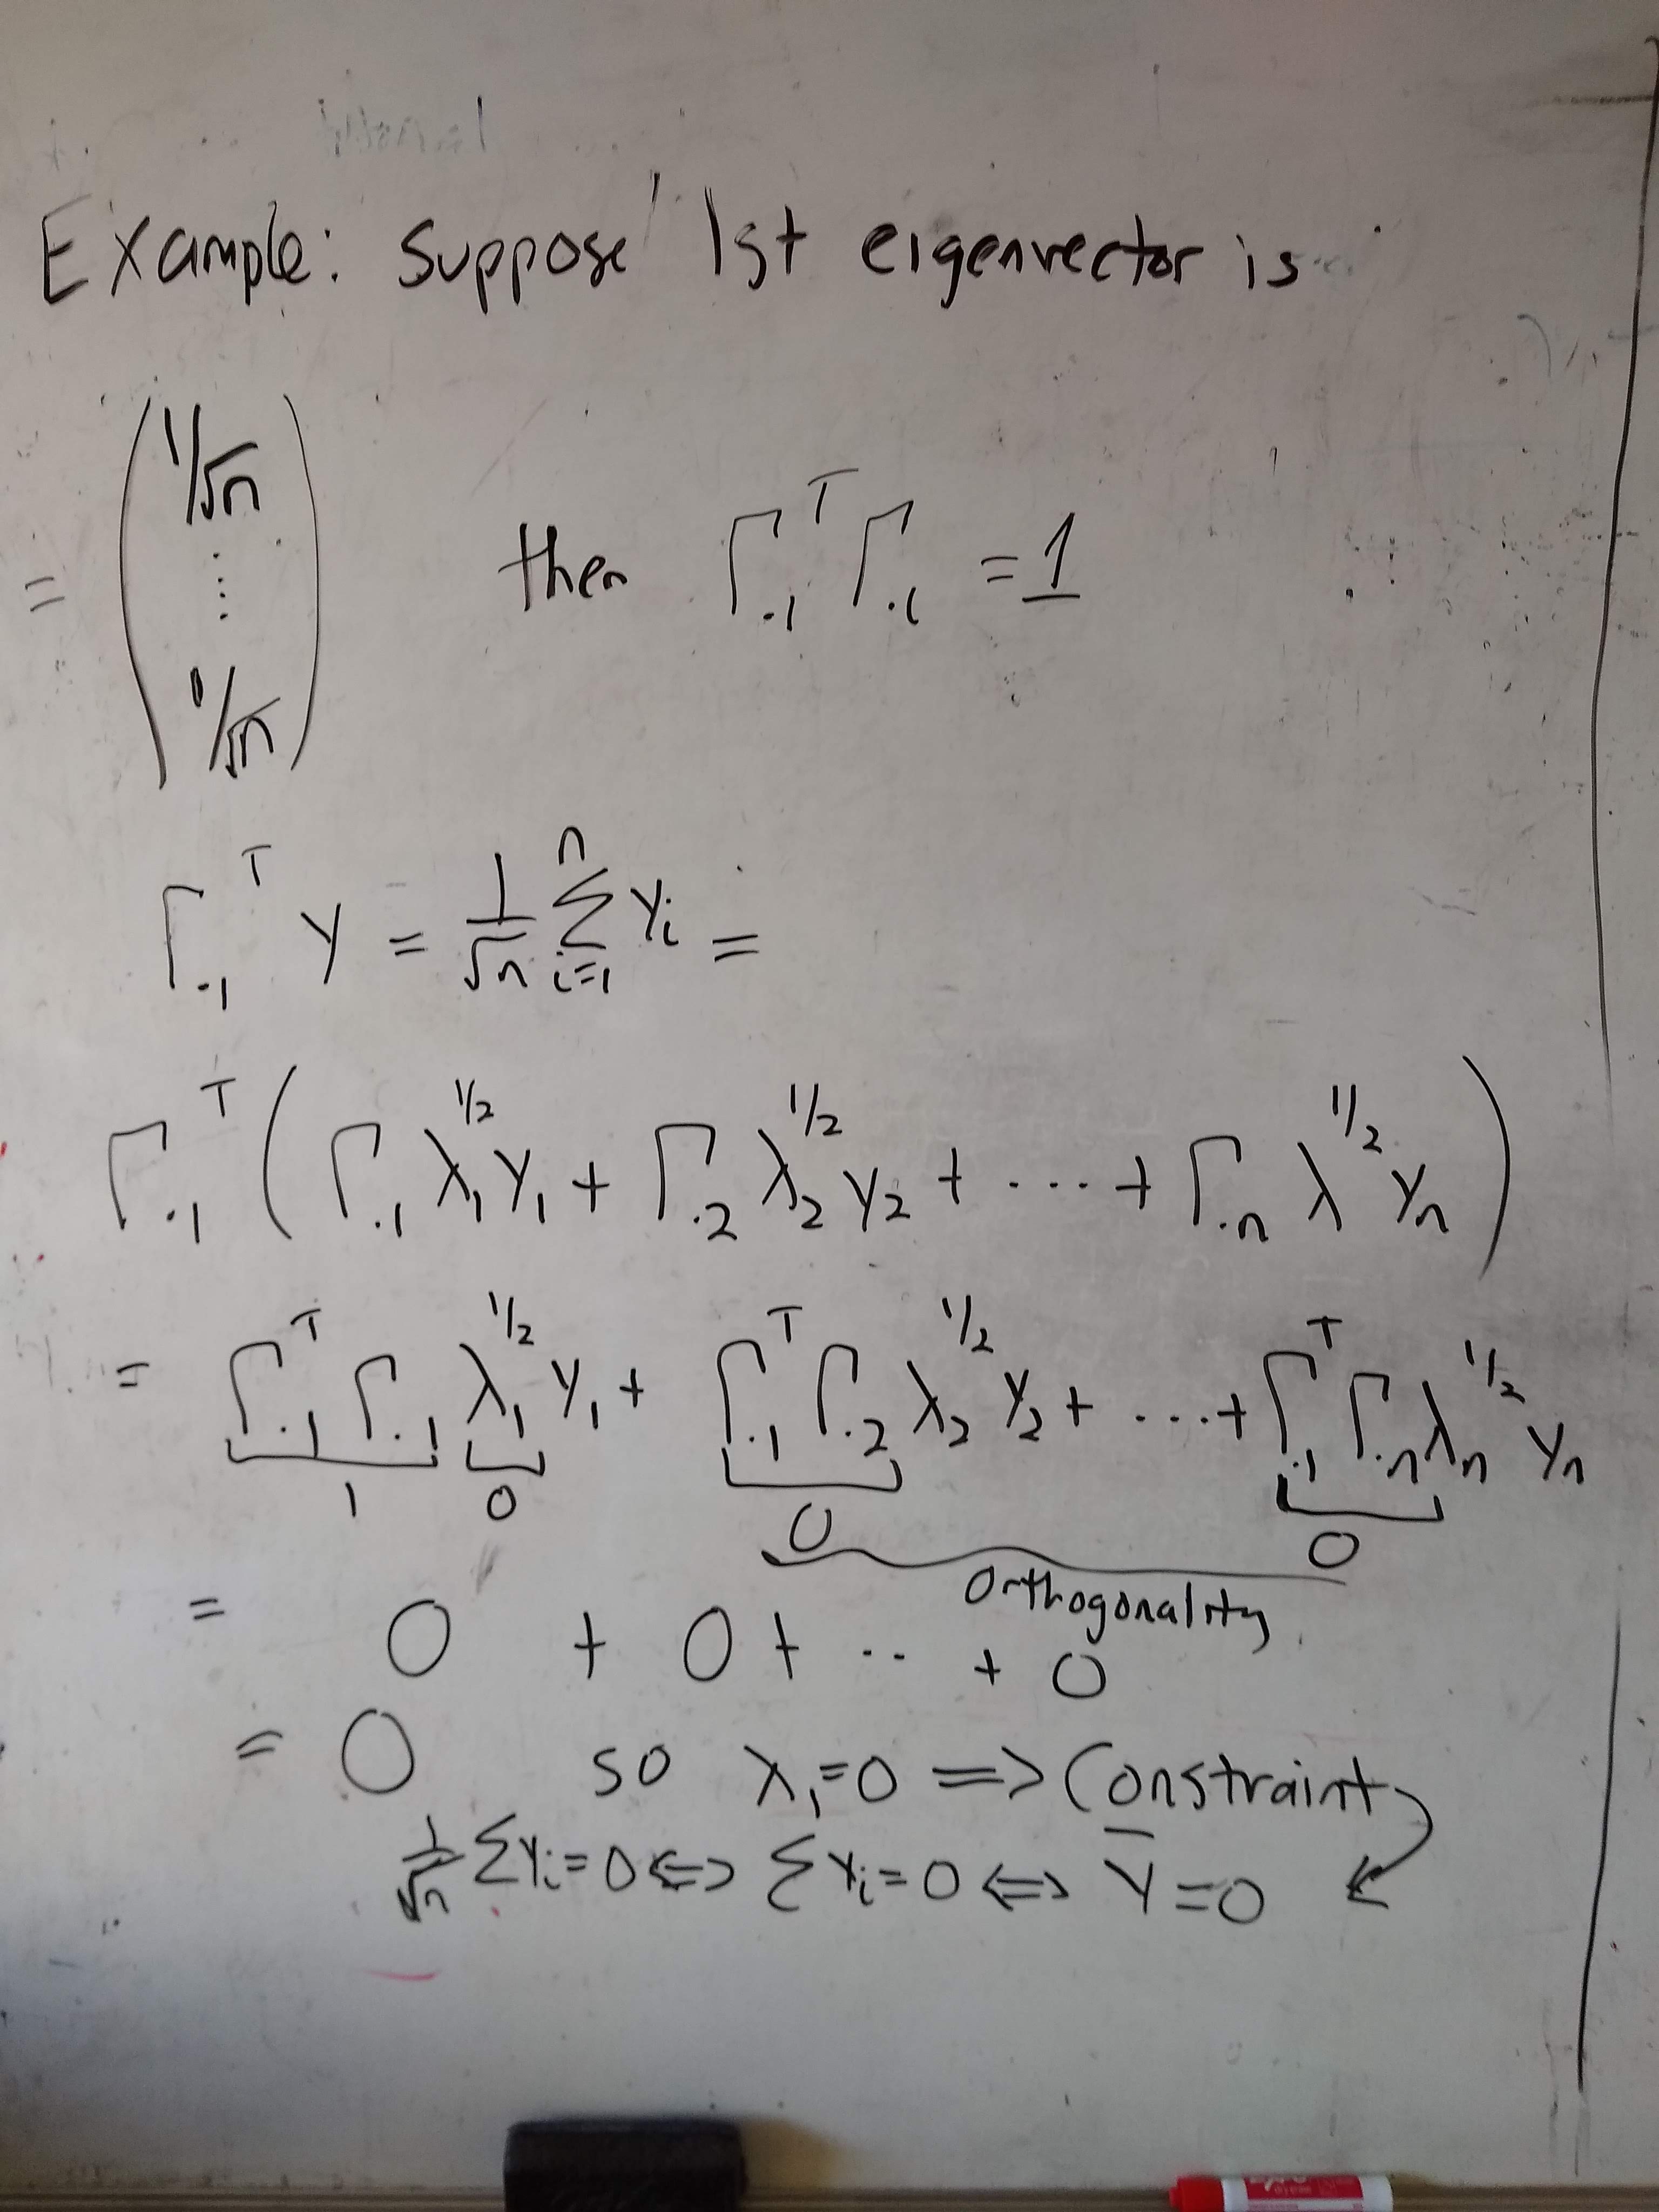 Example: suppose 1st eigenvector is
= (1/√n ⋮ 1/√n) then Γ.1ᵀ Γ.1 = 1
Γ.1ᵀ Y = 1/√n Σᵢ₌₁ⁿ Yᵢ =
Γ.1ᵀ (Γ.1 λ₁^1/2 Y₁ + Γ.2 λ₂^1/2 Y₂ + .... + Γ.n λ^1/2 Yn)
= Γ.1ᵀ Γ.1 λ₁^1/2 Y₁ + Γ.1ᵀ Γ.2 λ₂^1/2 Y₂ + ...+ Γ.1ᵀ Γ.n λn^1/2 Yn
1 0 0 0
Orthogonality
= 0 + 0 + .. + 0
= 0 so λ₁=0 => Constraint
1/√n ΣYᵢ=0 <=> ΣYᵢ=0 <=> Ȳ=0